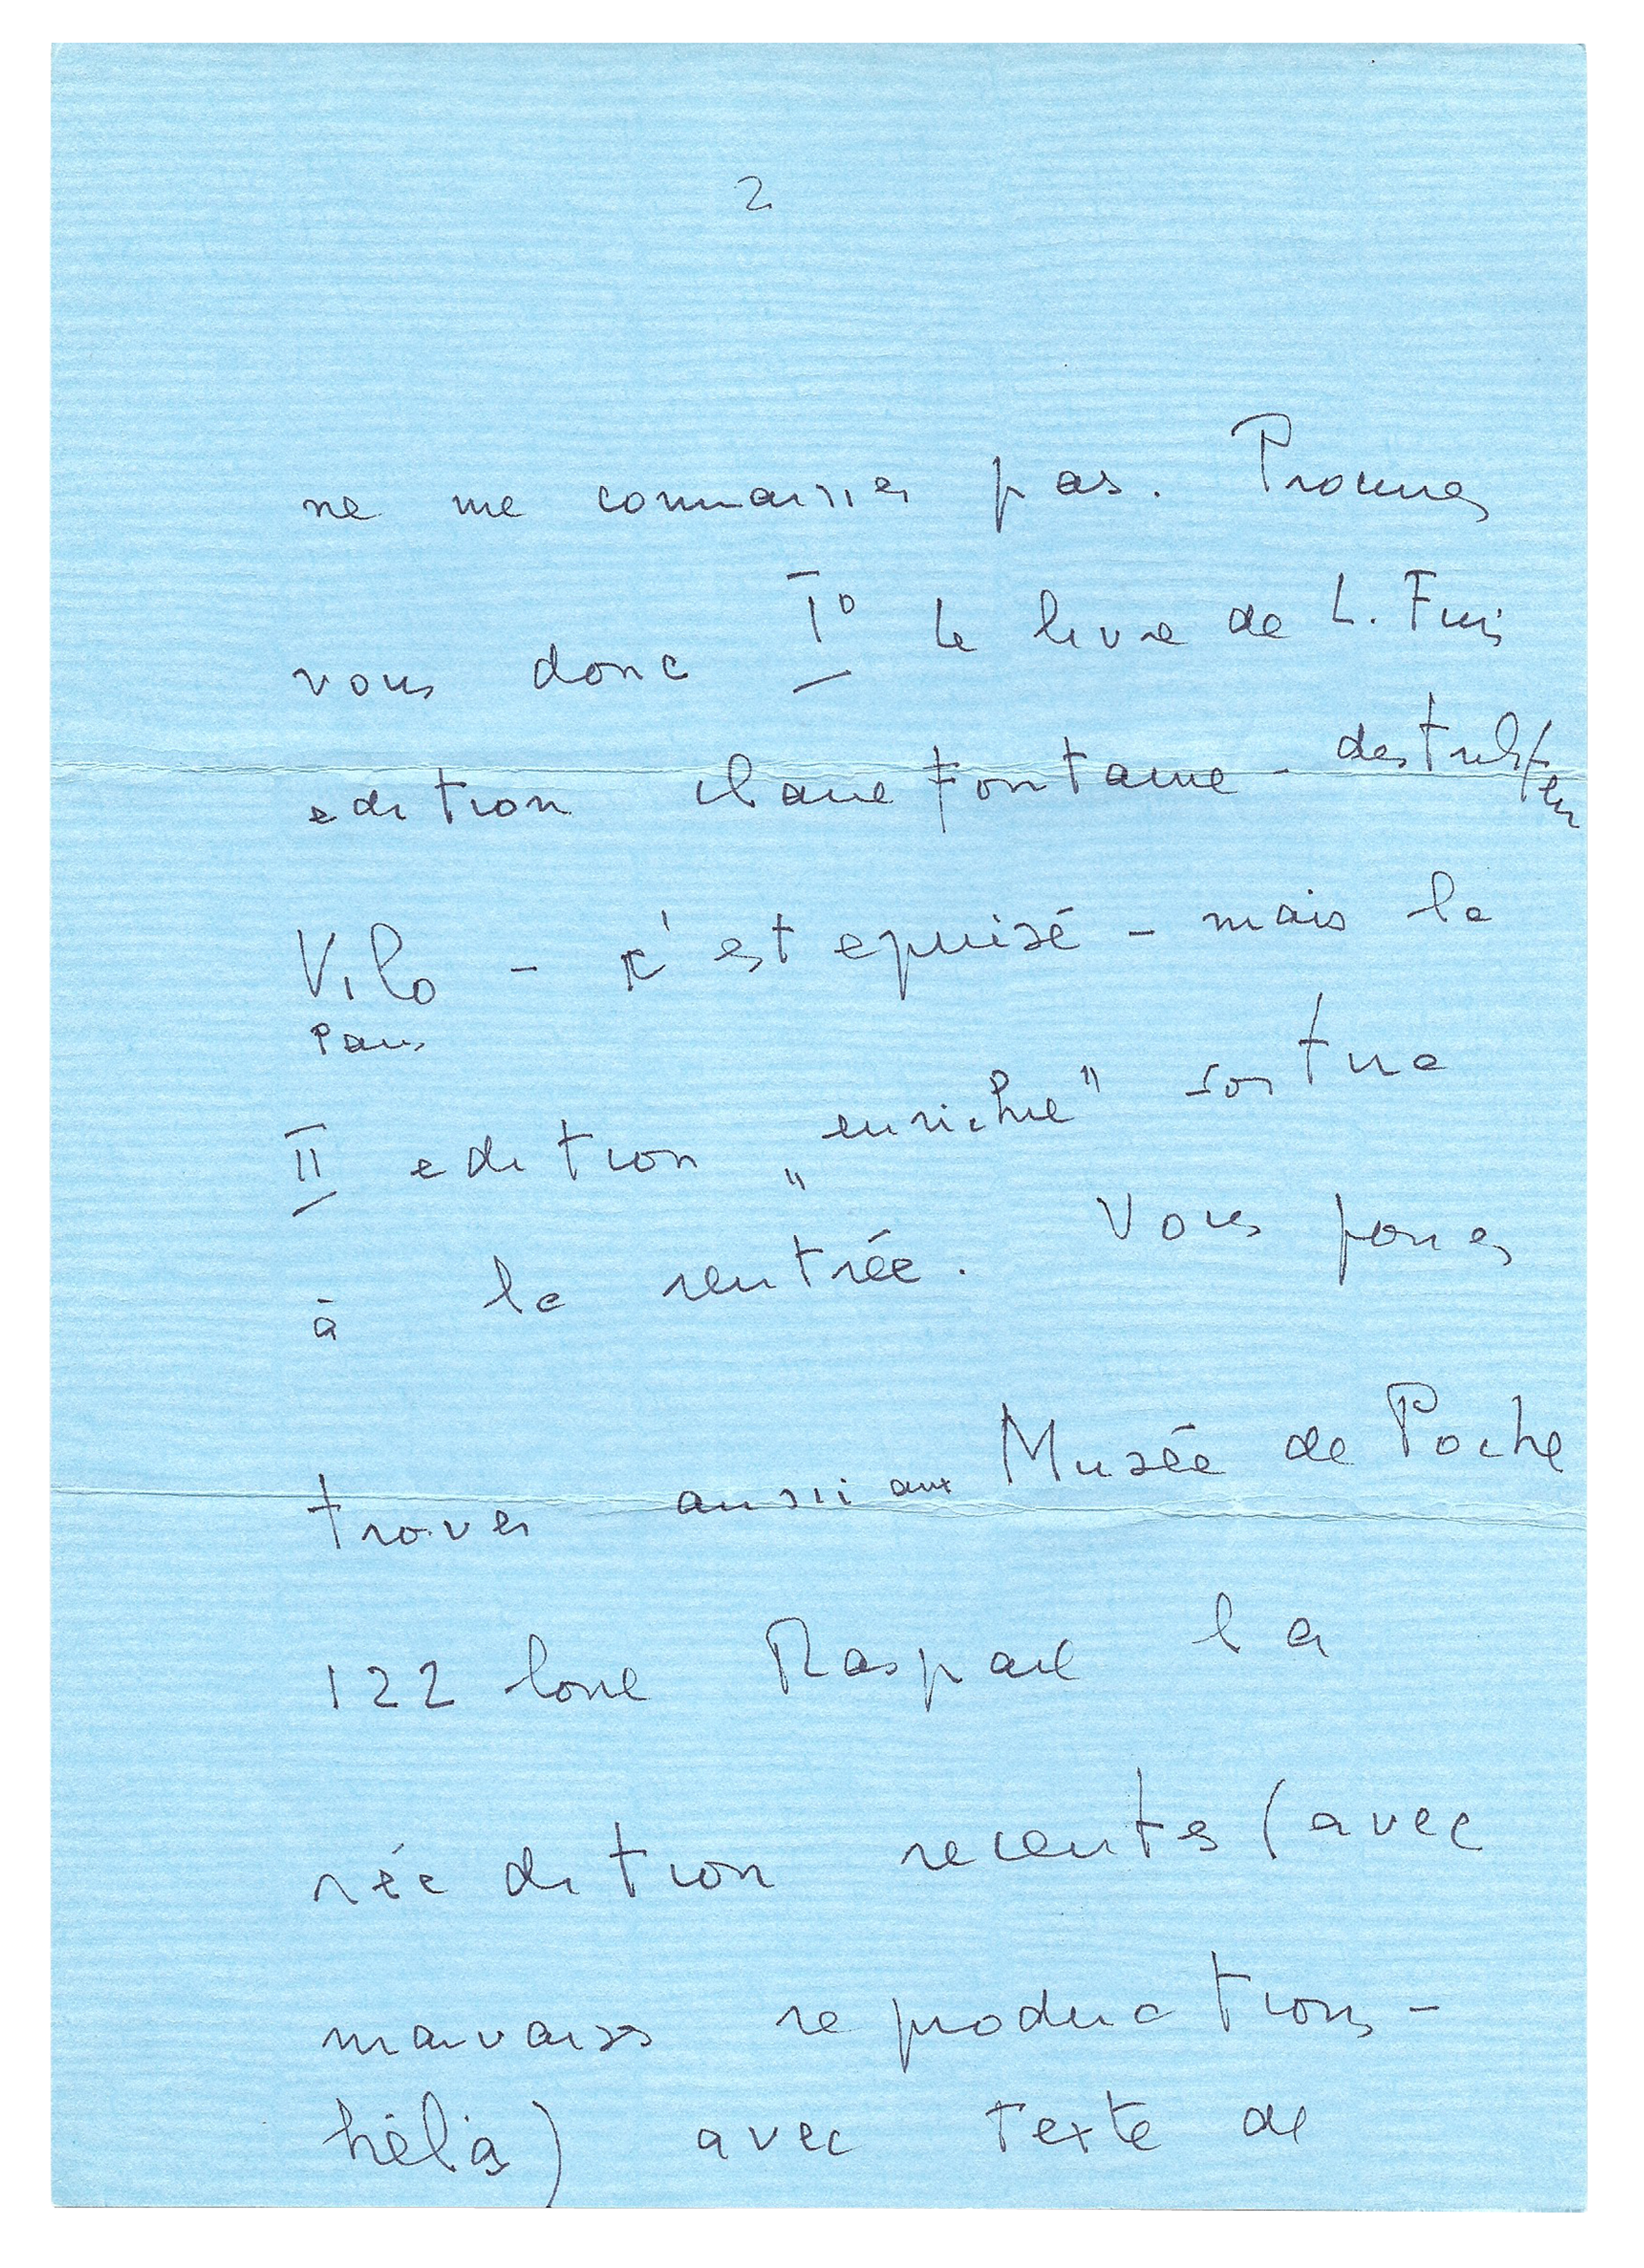 2
ne me connaissez pas. Procurez
vous donc I° le livre de L. Fini
edition Clairefontaine - destributeur
Vilo - c'est epuisé - mais la
Paris
II edition „enrichie" sortira
à la rentrée. Vous pouvez
trouver aussi aux Musée de Poche
122 boul Raspail la
réédition recente (avec
mauvaises reproductions -
hélàs) avec texte de